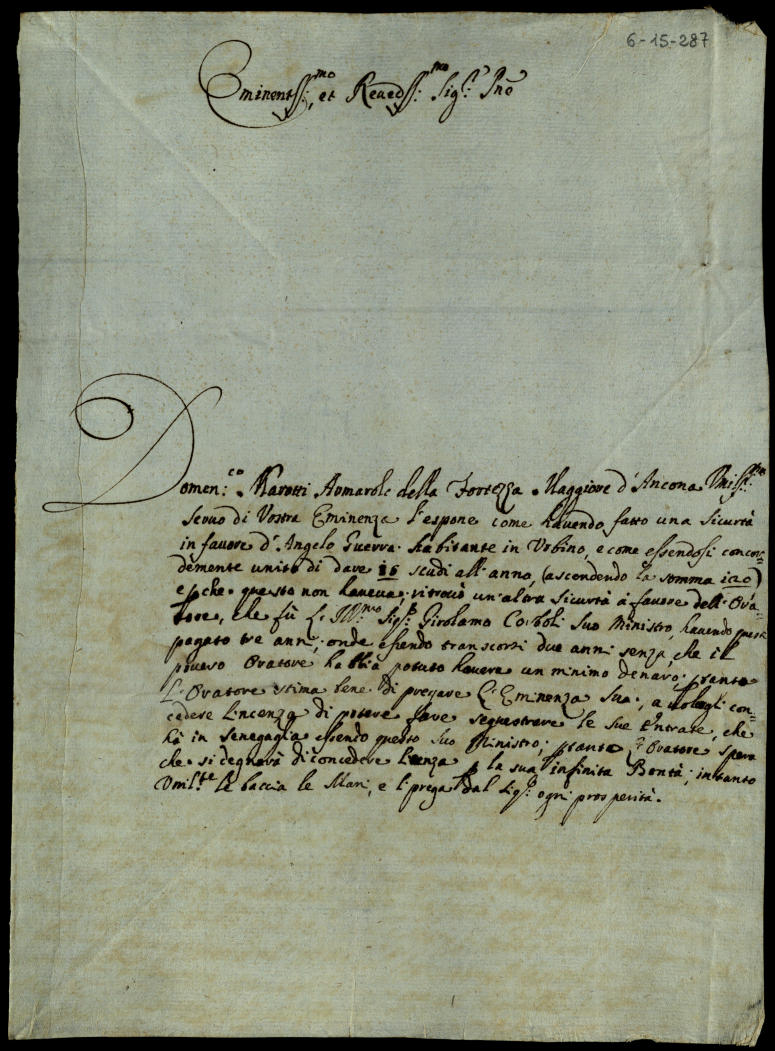 6-15-287
Eminentiss:mo, et Reuerdss:mo Sig:r Pne
Domen:co Marotti Armarolo della Fortezza Maggiore d'Ancona Vmiss:mo
seruo di Vostra Eminenza l'espone come hauendo fatto una sicurtà
in fauore d'Angelo Guerra habitante in Vrbino, e come essendosi concor=
demente unito di dare 15 scudi all'anno, (ascendendo la somma 120)
e pche questo non haueua, ritrouò un'altra sicurtà à fauore dell'Ora=
tore, che fù l'Ill:mo Sig:r Girolamo Corboli suo Ministro, hauendo questi
pagato tre anni, onde essendo transcorsi due anni senza, che il
pouero Oratore habbia potuto hauere un minimo denaro; ptanto
l'Oratore stima bene di pregare l'Eminenza sua, a uolergli con=
cedere lincenza di potere fare sequestrare le sue entrate, che
hà in Senegaglia essendo questo suo Ministro; ptanto l'Oratore spera
che si degnarà di concedere licenza p la sua infinita Bontà; intanto
Vmil:te le baccia le Mani, e li prega dal Sig:r ogni prosperità.